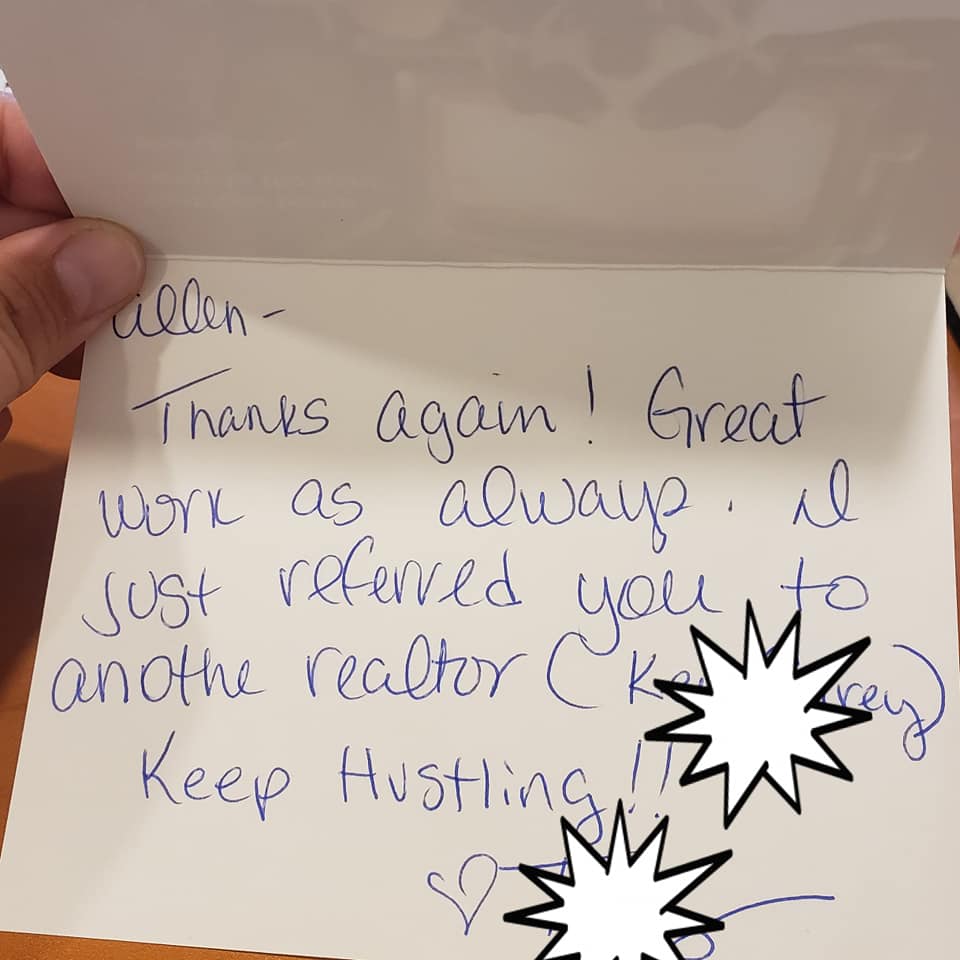 Thanks again! Great
work as always. I
just referred you to
anothe realtor (
Keep Hustling!!